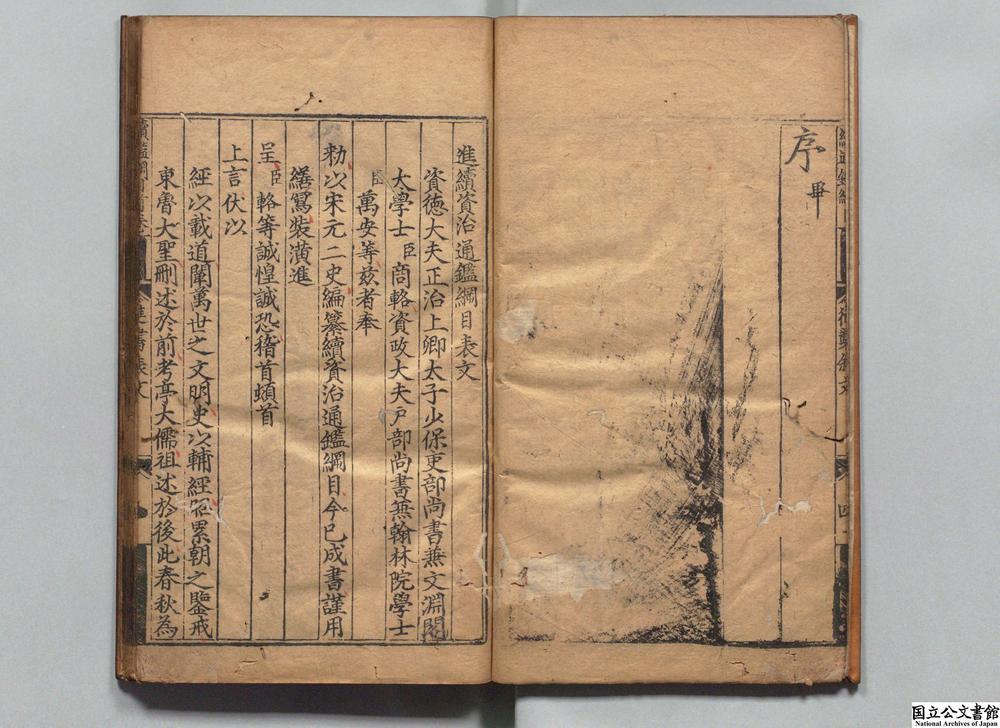 序畢
四
進續資治通鑑綱目表文
資德大夫正治上卿太子少保吏部尚書兼文淵閣
大學士臣商輅資政大夫戶部尚書兼翰林院學士
臣萬安等茲者奉
勑以宋元二史編纂續資治通鑑綱目今已成書謹用
繕寫裝潢進
呈臣輅等誠惶誠恐稽首頓首
上言伏以
經以載道闡萬世之文明史以輔經昭累朝之鑒戒
東魯大聖刪述於前考亭大儒祖述於後此春秋為
進書表文
国立公文書館
National Archives of Japan